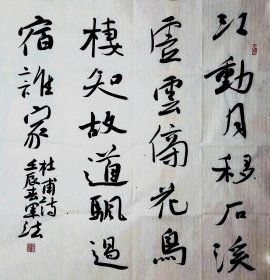 江動月移石溪
虛雲傍花鳥
棲知故道颿過
宿誰家
杜甫詩
壬辰